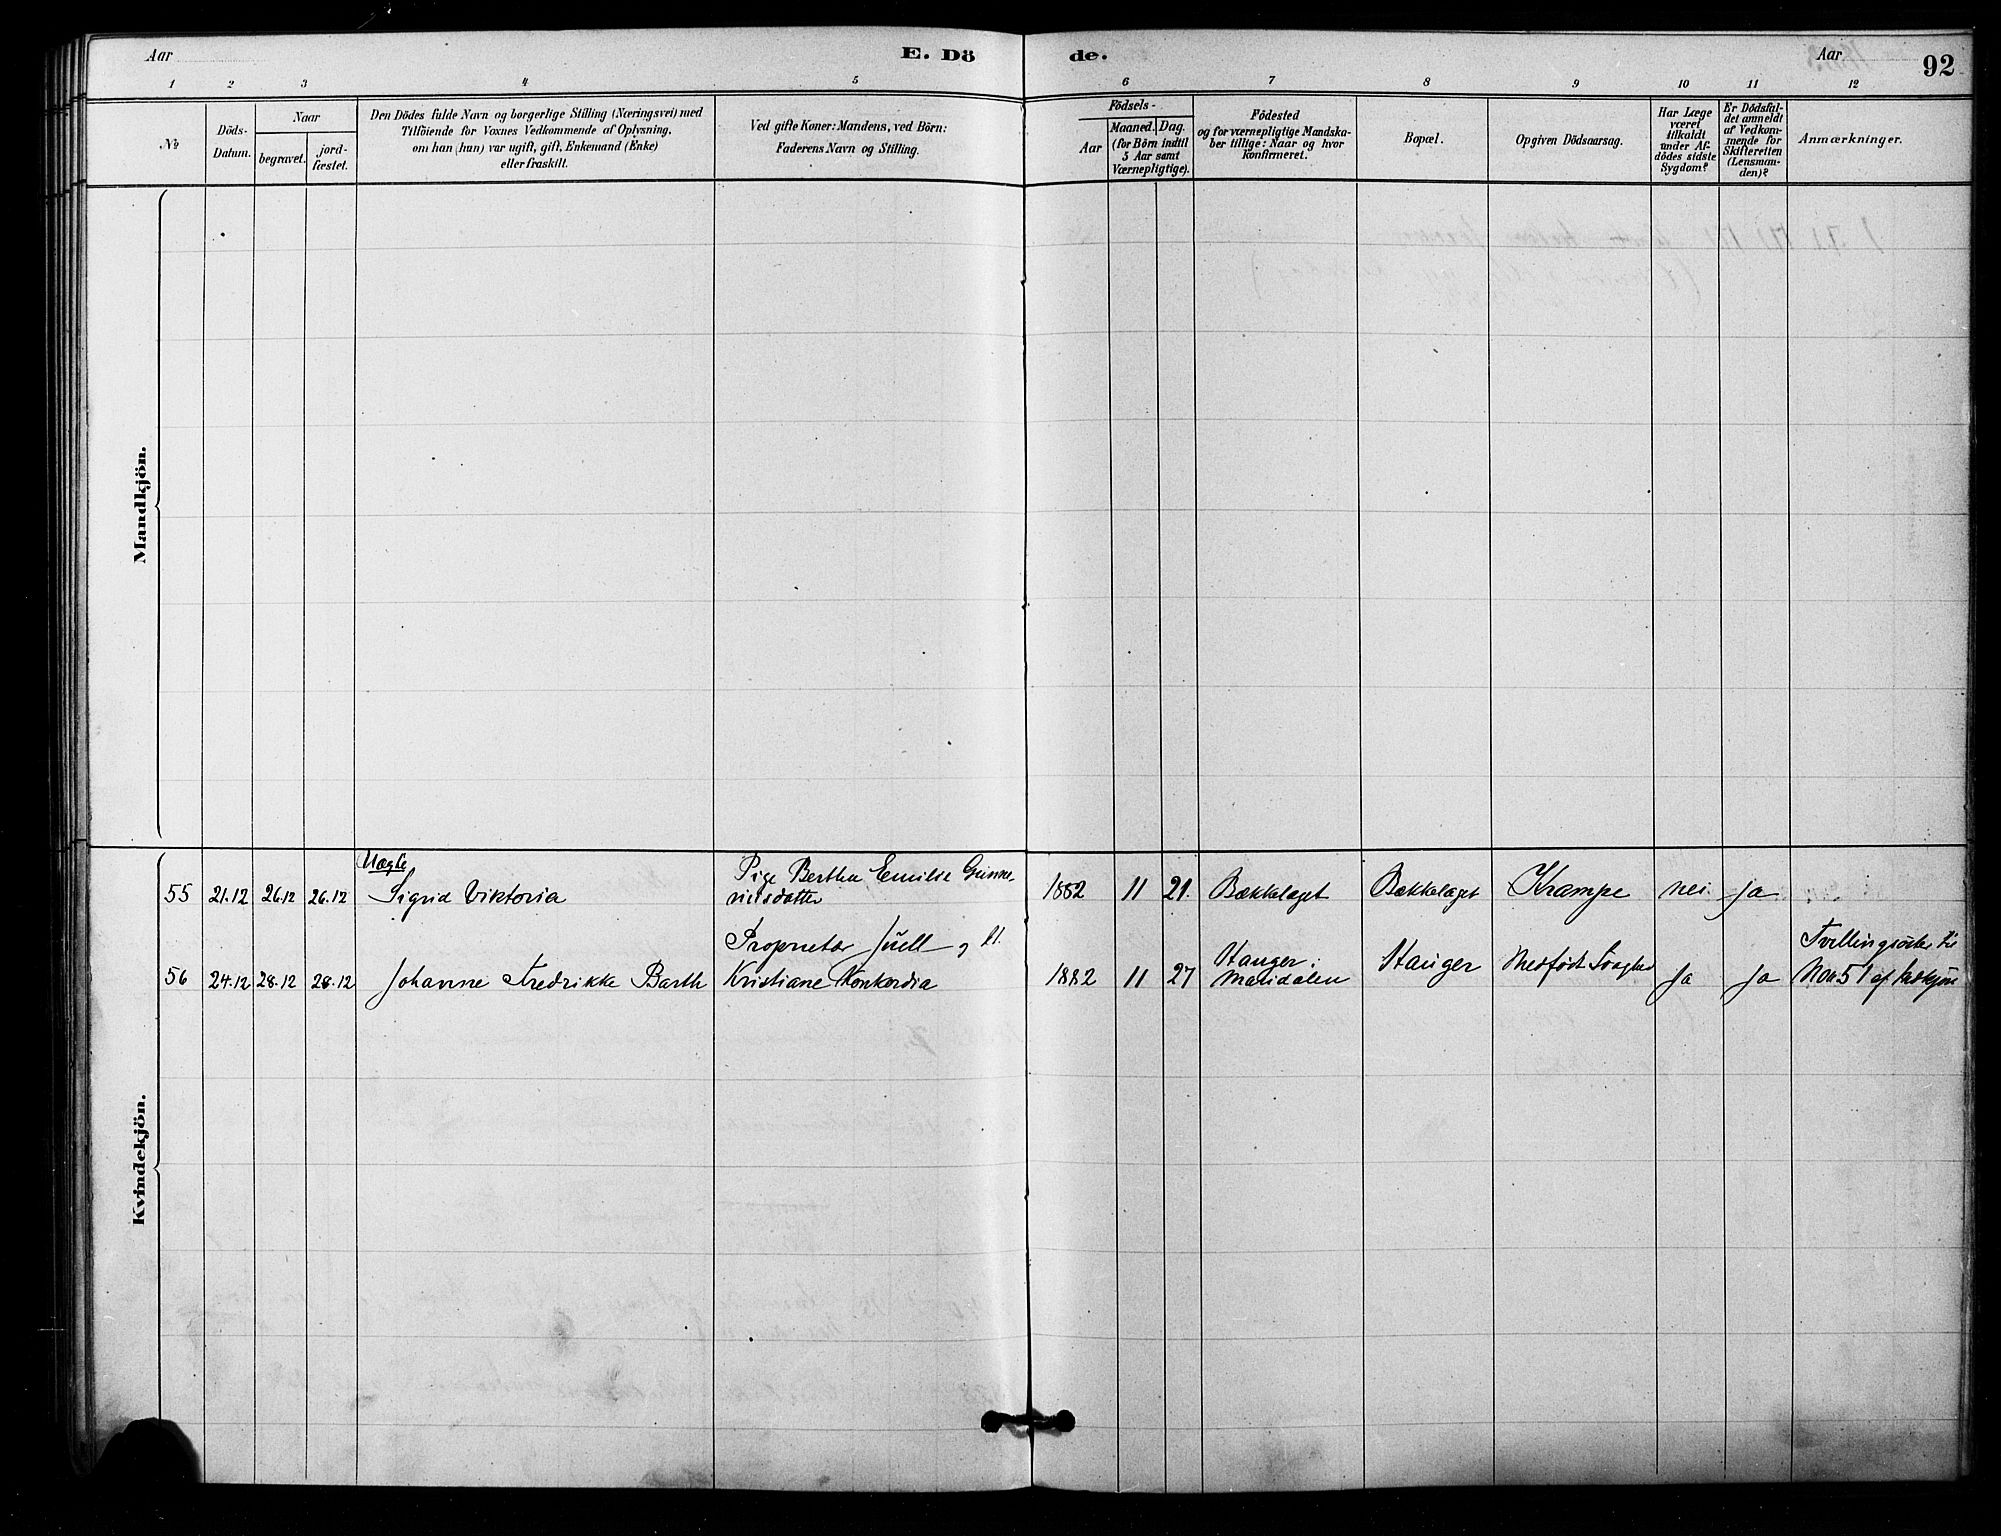 Aar
E. Dö
de.
Aar
92
1 2 3 4 5 6 7 8 9 10 11 12
№
Döds-
Datum.
Naar
begravet.
jord-
fæstet.
Den Dödes fulde Navn og borgerlige Stilling (Næringsvei) med
Tilföiende for Voxnes Vedkommende af Oplysning,
om han (hun) var ugift, gift, Enkemand (Enke)
eller fraskilt.
Ved gifte Koner: Mandens, ved Börn:
Faderens Navn og Stilling.
Födsels-
Aar
Maaned. Dag.
(for Börn indtil
5 Aar samt
Værnepligtige).
Födested
og for værnepligtige Mandska-
ber tillige: Naar og hvor
konfirmeret.
Bopæl.
Opgiven Dödsaarsag.
Har Læge
været
tilkaldt
under Af-
dödes sidste
Sygdom?
Er Dödsfal-
det anmeldt
af Vedkom-
mende for
Skifteretten
(Lensman-
den)?
Anmærkninger.
Mandkjön.
Kvindekjön.
Uægte
55 21.12 26.12 26.12 Sigrid Viktoria
Pige Bertha Emilie Gunne-
rielsdatter
1882 11 21. Bækkelaget Bækkelaget Krampe nei ja
56 24.12 28.12 28.12 Johanne Fredrikke Barth
Proprietær Juell og H.
Kristiane Konkordia
1882 11 27
Stanger:
Maridalen
Stanger Medfödt Svaghed Ja Ja
Tvillingsöster til
No 51 af Mdkjön